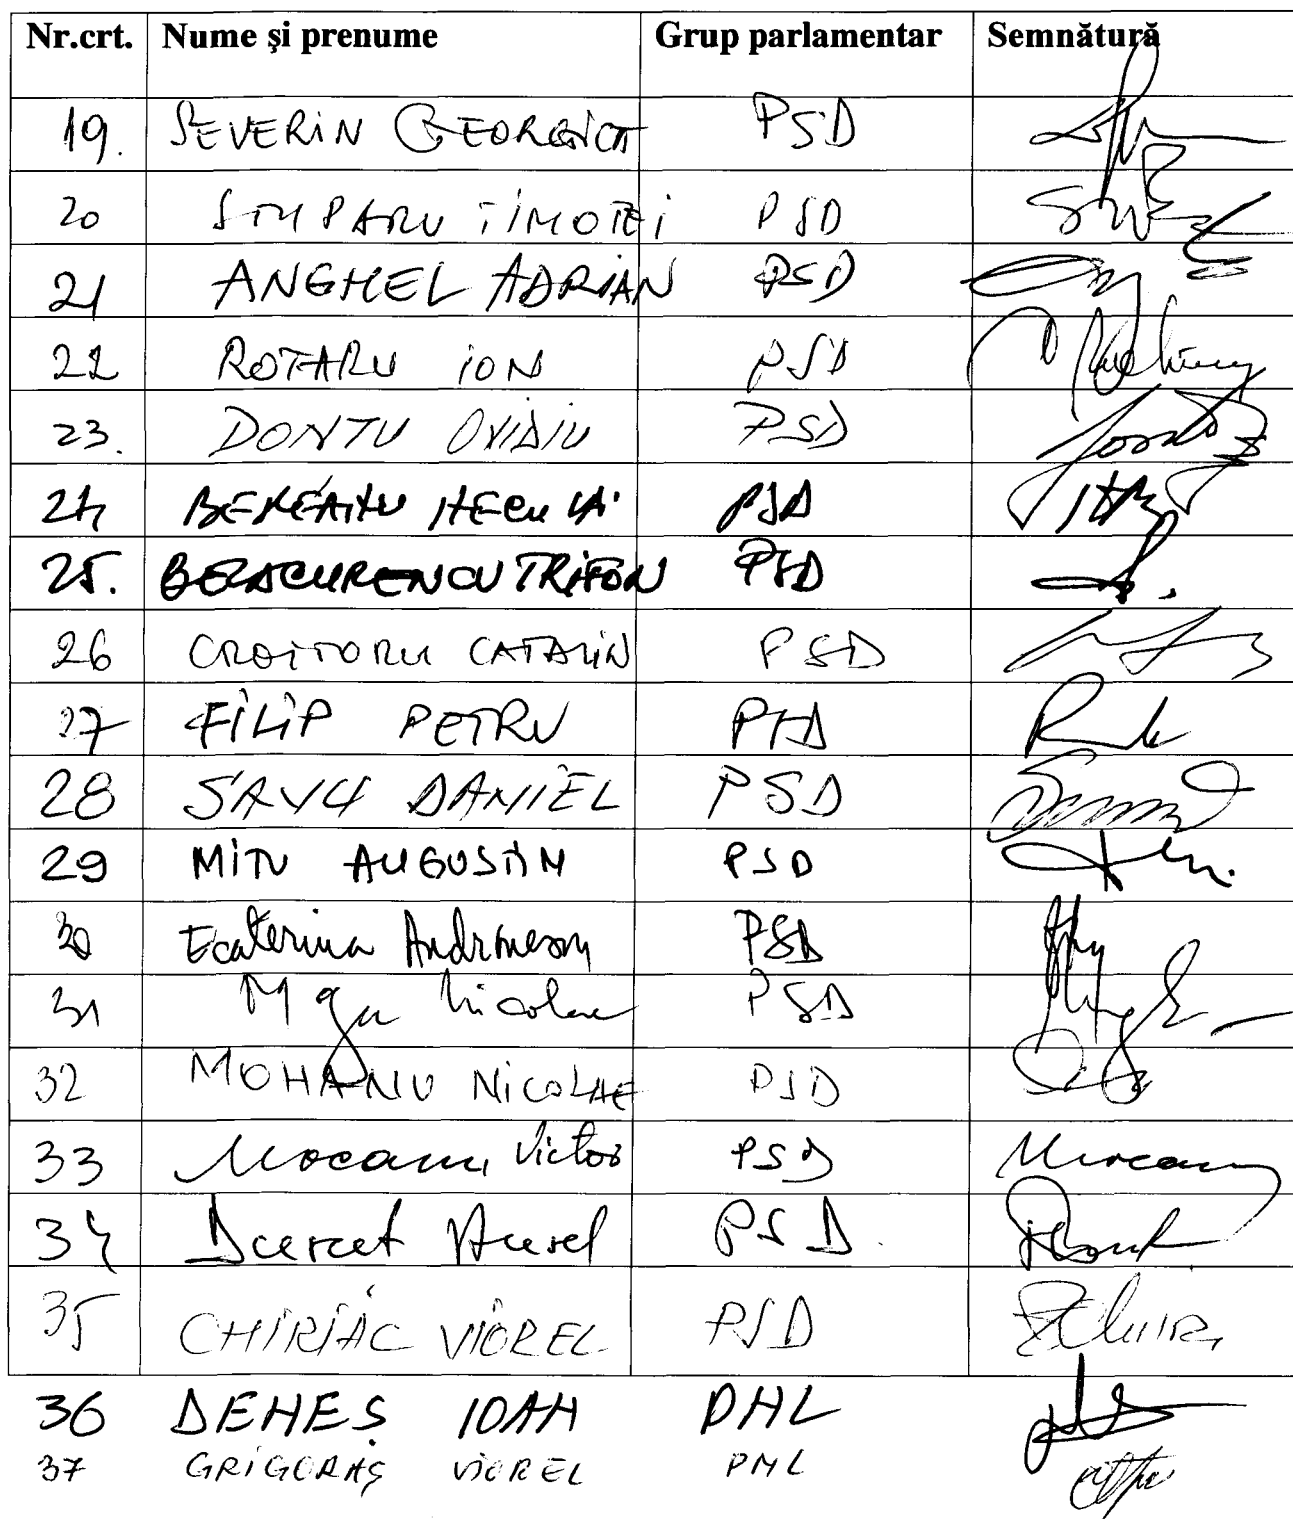 Nr.crt. Nume şi prenume Grup parlamentar Semnătură
19. SEVERIN GEORGICA PSD
20 STUPARU TIMOTEI PSD
21 ANGHEL ADRIAN PSD
22 ROTARU ION PSD
23. DONTU OVIDIU PSD
24 PSD
25. TRIFON PSD
26 CROITORU CATALIN PSD
27 FILIP PETRU PSD
28 SAVU DANIEL PSD
29 MITU AUGUSTIN PSD
30 Ecaterina Andronescu PSD
31 Nicolae PSD
32 MOHANU NICOLAE PSD
33 Mocanu Victor PSD
34 Aurel PSD.
35 CHIRIAC VIOREL PSD
36 DENEŞ IOAN PNL
37 GRIGORAŞ VIOREL PNL